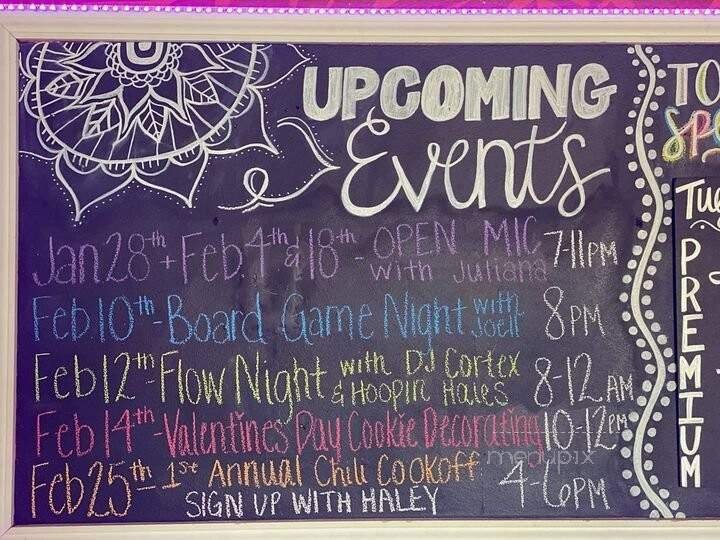 UPCOMING
Events
Jan 28th + Feb. 4th & 18th - OPEN MIC with Juliana 7-11PM
Feb 10th - Board Game Night with Joell 8PM
Feb 12th - Flow Night with DJ Cortex & Hoopin Hales 8-12 AM
Feb 14th - Valentines Day Cookie Decorating 10-12PM
Feb 25th - 1st Annual Chili Cookoff 4-6PM
SIGN UP WITH HALEY
TO
SPE
Tue
PREMIUM
menupix